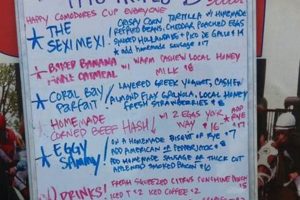 HAPPY COMODORES CUP EVERYONE
* THE SEXI MEXI! CRISPY CORN TORTILLA w/ HOMEMADE
REFRIED BEANS, CHEDDAR, POACHED EGGS
SMOKED HOLLANDAISE + PICO DE GALLO $14
* add homemade sausage $17
BAKED BANANA w/ WARM CASHEW LOCAL HONEY
OATMEAL MILK $8
* CORAL BAY PARFAIT! / LAYERED GREEK YOGURT, CASHEW/
ALMOND FLAX GRANOLA, LOCAL HONEY
FRESH STRAWBERRIES $8
HOMEMADE CORNED BEEF HASH! w/ 2 EGGS YOUR WAY $16 ADD RYE $17
* EGGY SAMMY / ON A HOMEMADE BISCUIT OR RYE $7
ADD AMERICAN OR PEPPERJACK $8
ADD HOMEMADE SAUSAGE OR THICK CUT
APPLEWOOD SMOKED BACON $10
DRINKS! FRESH SQUEEZED CITRUS SUNSHINE PUNCH $5
ICED T $2 ICED COFFEE $2